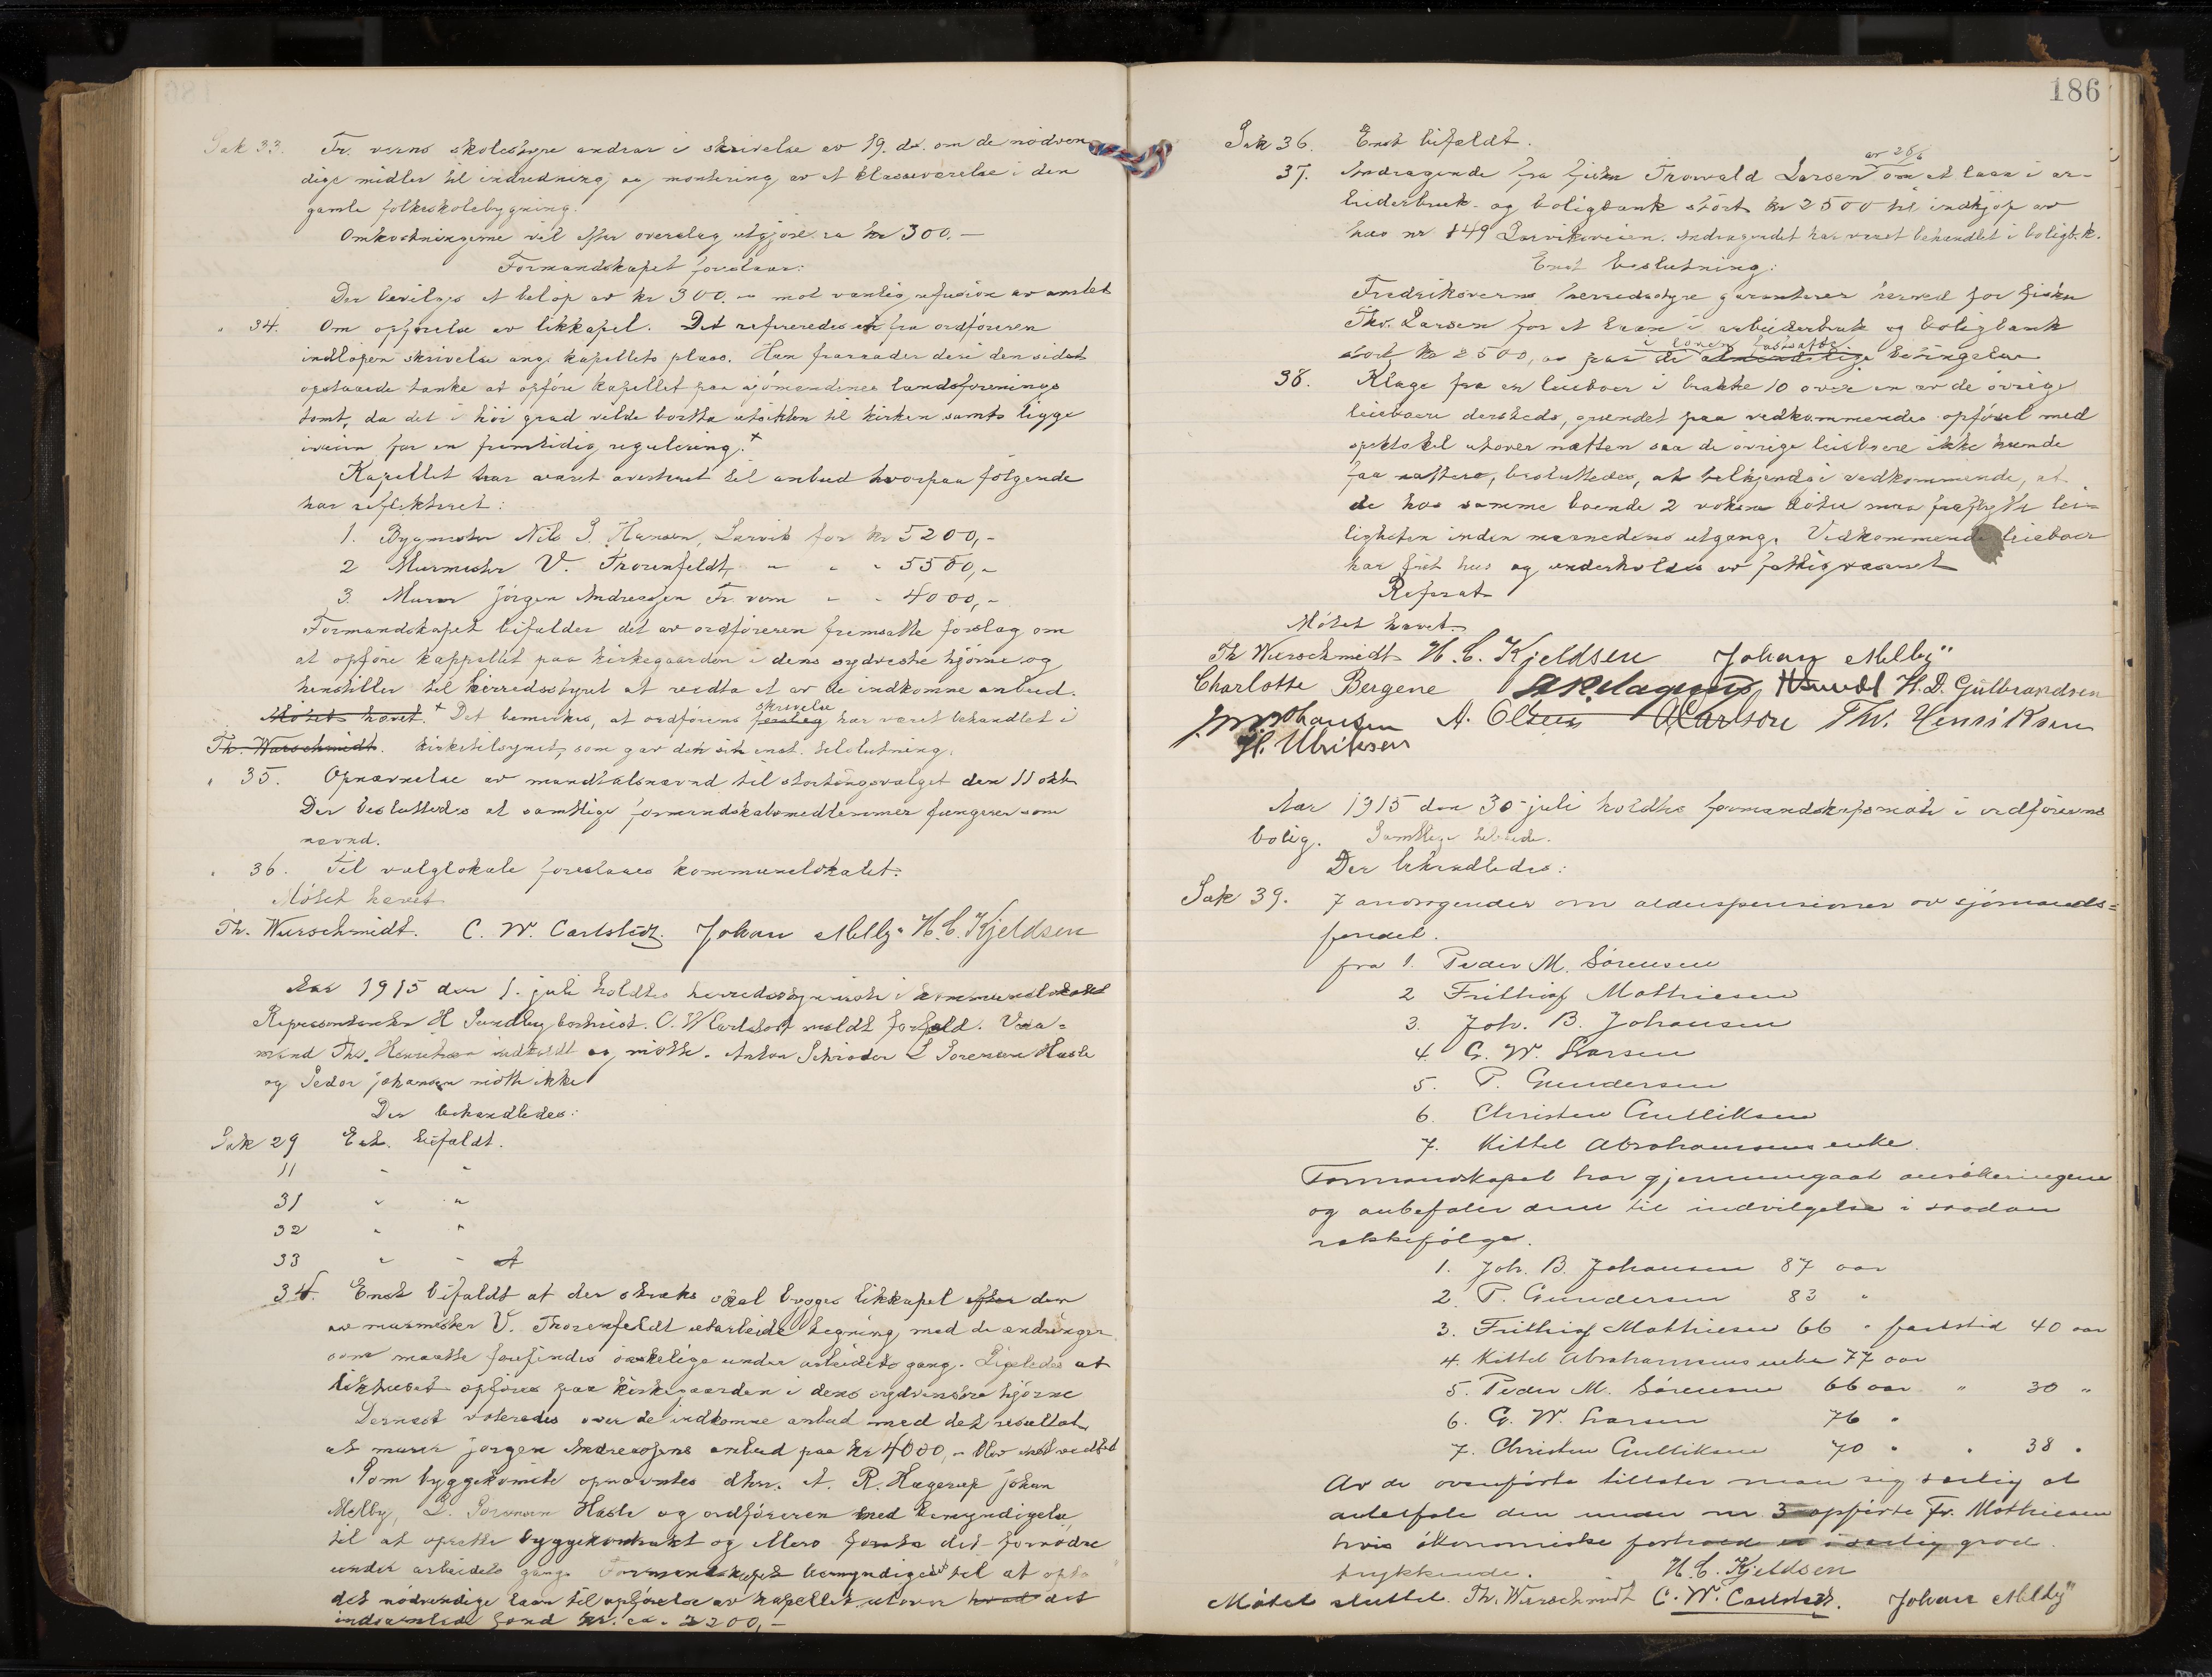 Sak 33. Fr. verns skolestyre andrar i skrivelse av 19. ds. om de nödven
dige midler til indredning og montering av et klasseværelse i den
gamle folkeskolebygning.
Omkostningerne vil efter overslag utgjøre ca kr 300.—
Formandskapet foreslaar:
Der bevilges et beløp av kr 300.— mot vanlig refusion av amtet
" 34. Om opførelse av likkapel. Det refereredes en fra ordføreren
indløpen skrivelse ang. kapellets plass. Han fraraader deri den sidst
opstaaede tanke at opføre kapellet paa sjömændenes landsforenings
tomt, da det i höi grad vilde bortta utsikten til kirken samt ligge
iveien for en fremtidig regulering.+
Kapellet har været averteret til anbud hvorpaa følgende
har reflekteret:
1. Bygmester Nils S. Hansen, Larvik for kr 5200,-
2 Murmester V. Thorenfeldt, " " " 5500,-
3. Murer Jörgen Andreasen Fr. vern " " 4000,-
Formandskapet bifalder det av ordføreren fremsatte forslag om
at opføre kappellet paa kirkegaarden i dens sydvestre hjørne og
henstiller til herredsstyret at vedta et av de indkomne anbud.
Mötet hævet. + Det bemerkes, at ordførens forslag skrivelse har været behandlet i
Th. Wurschmidt. kirketilsynet, som gav den sin enst. tilslutning.
" 35. Opnævnelse av mandtalsnævnd til stortingsvalget den 11 okt.
Der besluttedes at samtlige formandskabsmedlemmer fungerer som
nævnd.
" 36. Til valglokale foreslaaes kommunelokalet.
Mötet hævet
Th. Wurschmidt. C. W. Carlstedt. Johan Melby H. C. Kjeldsen
Aar 1915 den 1. juli holdtes herredsstyremöte i kommunelokalet
Repræsentanten H Sundby bortreist. C. W Carlstedt meldt forfald. Vara=
mænd Thv. Henriksen indkaldt og mötte. Anton Schröder L Sorensen Hasle
og Peder Johansen mötte ikke
Der behandledes:
Sak 29 Enst. bifaldt.
11 " "
31 " "
32 " "
33 " "
34. Enst bifaldt at der straks skal bygges likkapel efter den
av murmester V. Thorenfeldt utarbeide tegning med de ændringer
som maatte forefindes önskelige under arbeidets gang. Ligeledes at
likhuset opføres paa kirkegaarden i dens sydvestre hjörne
Dernest voteredes over de indkomne anbud med det resultat
at murer Jørgen Andreasens anbud paa kr 4000,- blev enst vedtat
Som byggekomite opnævntes dhrr. A. R. Hagerup Johan
Melby, L. Sorensen Hasle og ordføreren med bemyndigelse
til at oprette byggekontrakt og ellers foreta det fornødne
under arbeidets gang. Formandskapet bemyndiges til at opta
det nødvendige laan til opførelse av kapellet utover hvad det
indsamlede fond kr. ca. 2200,-
186
Sak 36. Enst bifaldt.
37. Andragende fra fisker Thorvald Larsen av 26/6 om et laan i ar-
beiderbruk- og boligbank stort kr 2500 til indkjøp av
hus nr. 149 Larvikveien. Andragendet har været behandlet i boligb.k.
Enst beslutning:
Fredriksverns herredsstyre garanterer herved for fisker
Thv. Larsen for et laan i arbeiderbruk og boligbank
stort kr 2500, av paa de almindelige i loven fastsatte betingelser
38. Klage fra en leieboer i brakke 10 over en av de övrige
leieboere dersteds, grundet paa vedkommendes opførsel med
spektakel utover natten saa de övrige leieboere ikke kunde
faa nattero, besluttedes, at tilkjendegi vedkommende, at
de hos samme boende 2 voksne dötre maa fraflytte lei-
ligheten inden maanedens utgang. Vedkommende leieboer
har frit hus og underholdes av fattigvæsenet
Referat
Mötet hævet.
Th Wurschmidt H. C. Kjeldsen Johan Melby
Charlotte Bergene H. D. Gulbrandsen
Johansen A. Olsen ACarlson Thv. Henriksen
H. Ulriksen
Aar 1915 den 30 juli holdtes formandskapsmöte i ordførerens
bolig. Samtlige tilstede.
Der behandledes:
Sak 39. 7 andragender om alderspensioner av sjömands=
fondet.
fra 1. Peder M. Sörensen
2 Frithiof Mathiesen
3. Joh. B. Johansen
4. G. W. Larsen
5. P. Gundersen
6. Christen Gulliksen
7. Kittel Abrahamsens enke.
Formandskapet har gjennemgaat ansökningene
og anbefaler dem til indvilgelse i saadan
rekkefölge.
1. Joh. B. Johansen 87 aar
2. P. Gundersen 83 "
3. Frithiof Mathiesen 66 " fartstid 40 aar
4. Kittel Abrahamsens enke 77 aar
5. Peder M. Sörensen 66 aar " 30 "
6. G. W. Larsen 76 "
7. Christen Gulliksen 70 " " 38 "
Av de ovenförte tillater man sig særlig at
anbefale den under nr 3 opförte Fr. Mathiesen
hvis ökonomiske forhold er i særlig grad
trykkende. H. C. Kjeldsen
Mötet sluttet. Th. Wurschmidt C. W. Carlstedt. Johan Melby